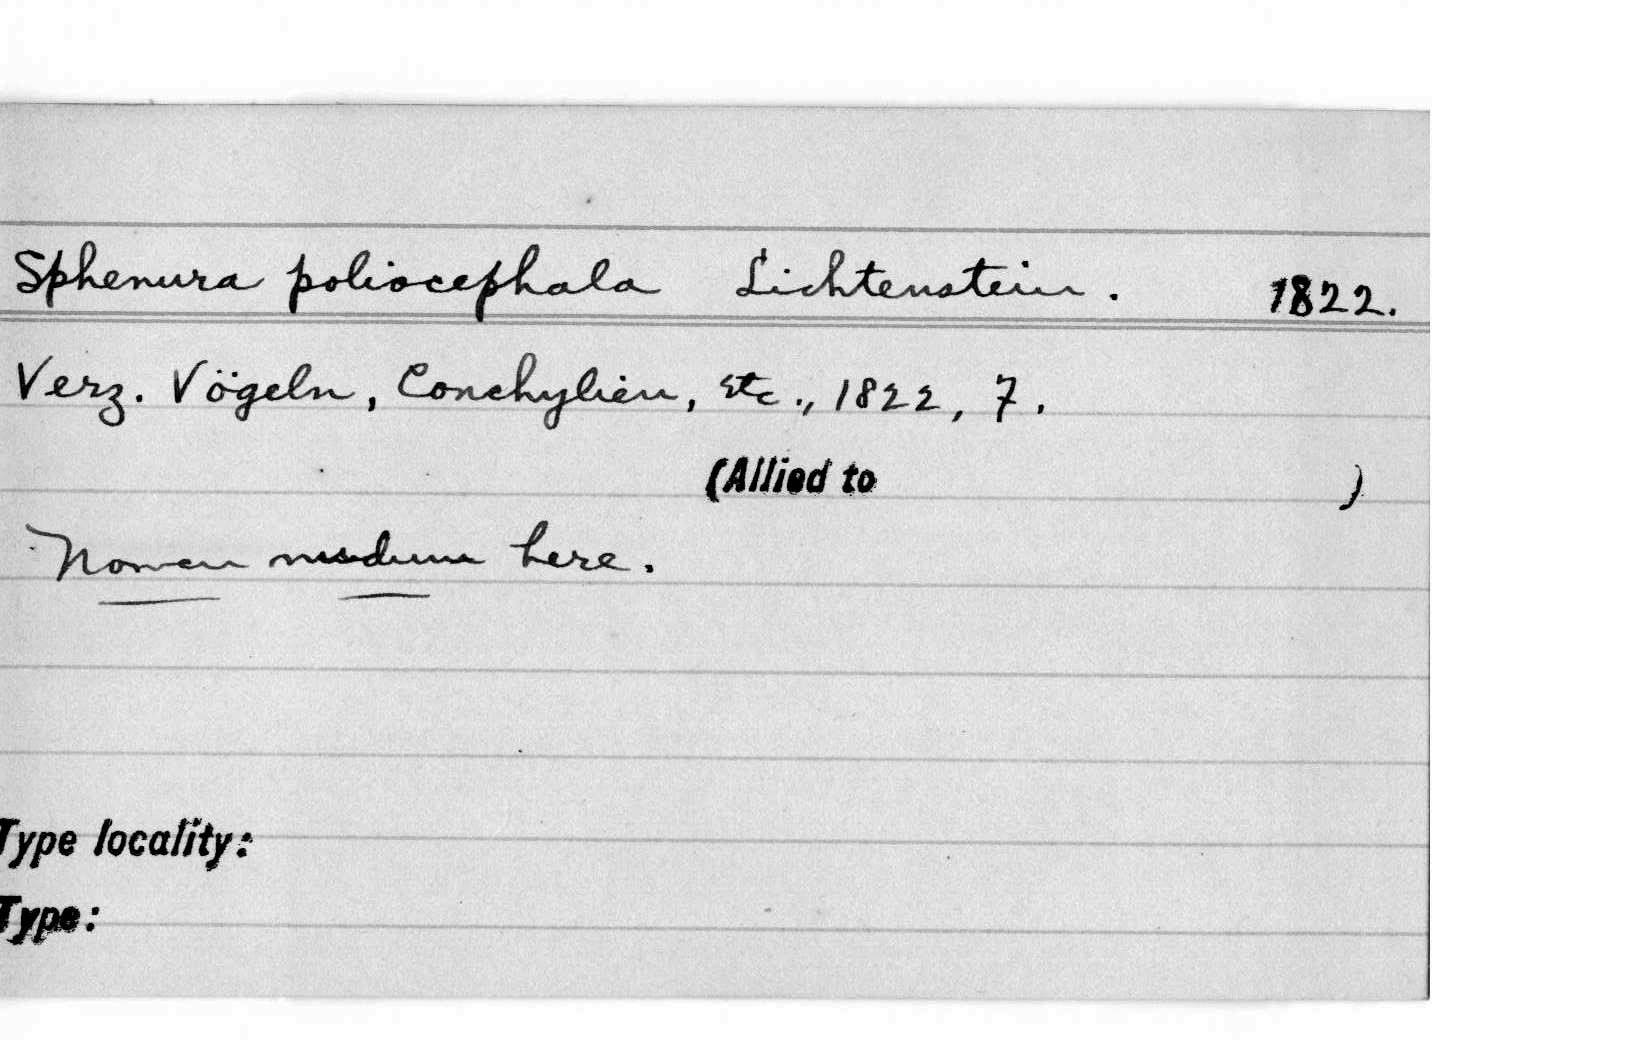 Sphenura poliocephala Lichtenstein. 1822.
Verz. Vögeln, Conchylien, etc., 1822, 7.
(Allied to )
Nomen nudum here.
Type locality:
Type: